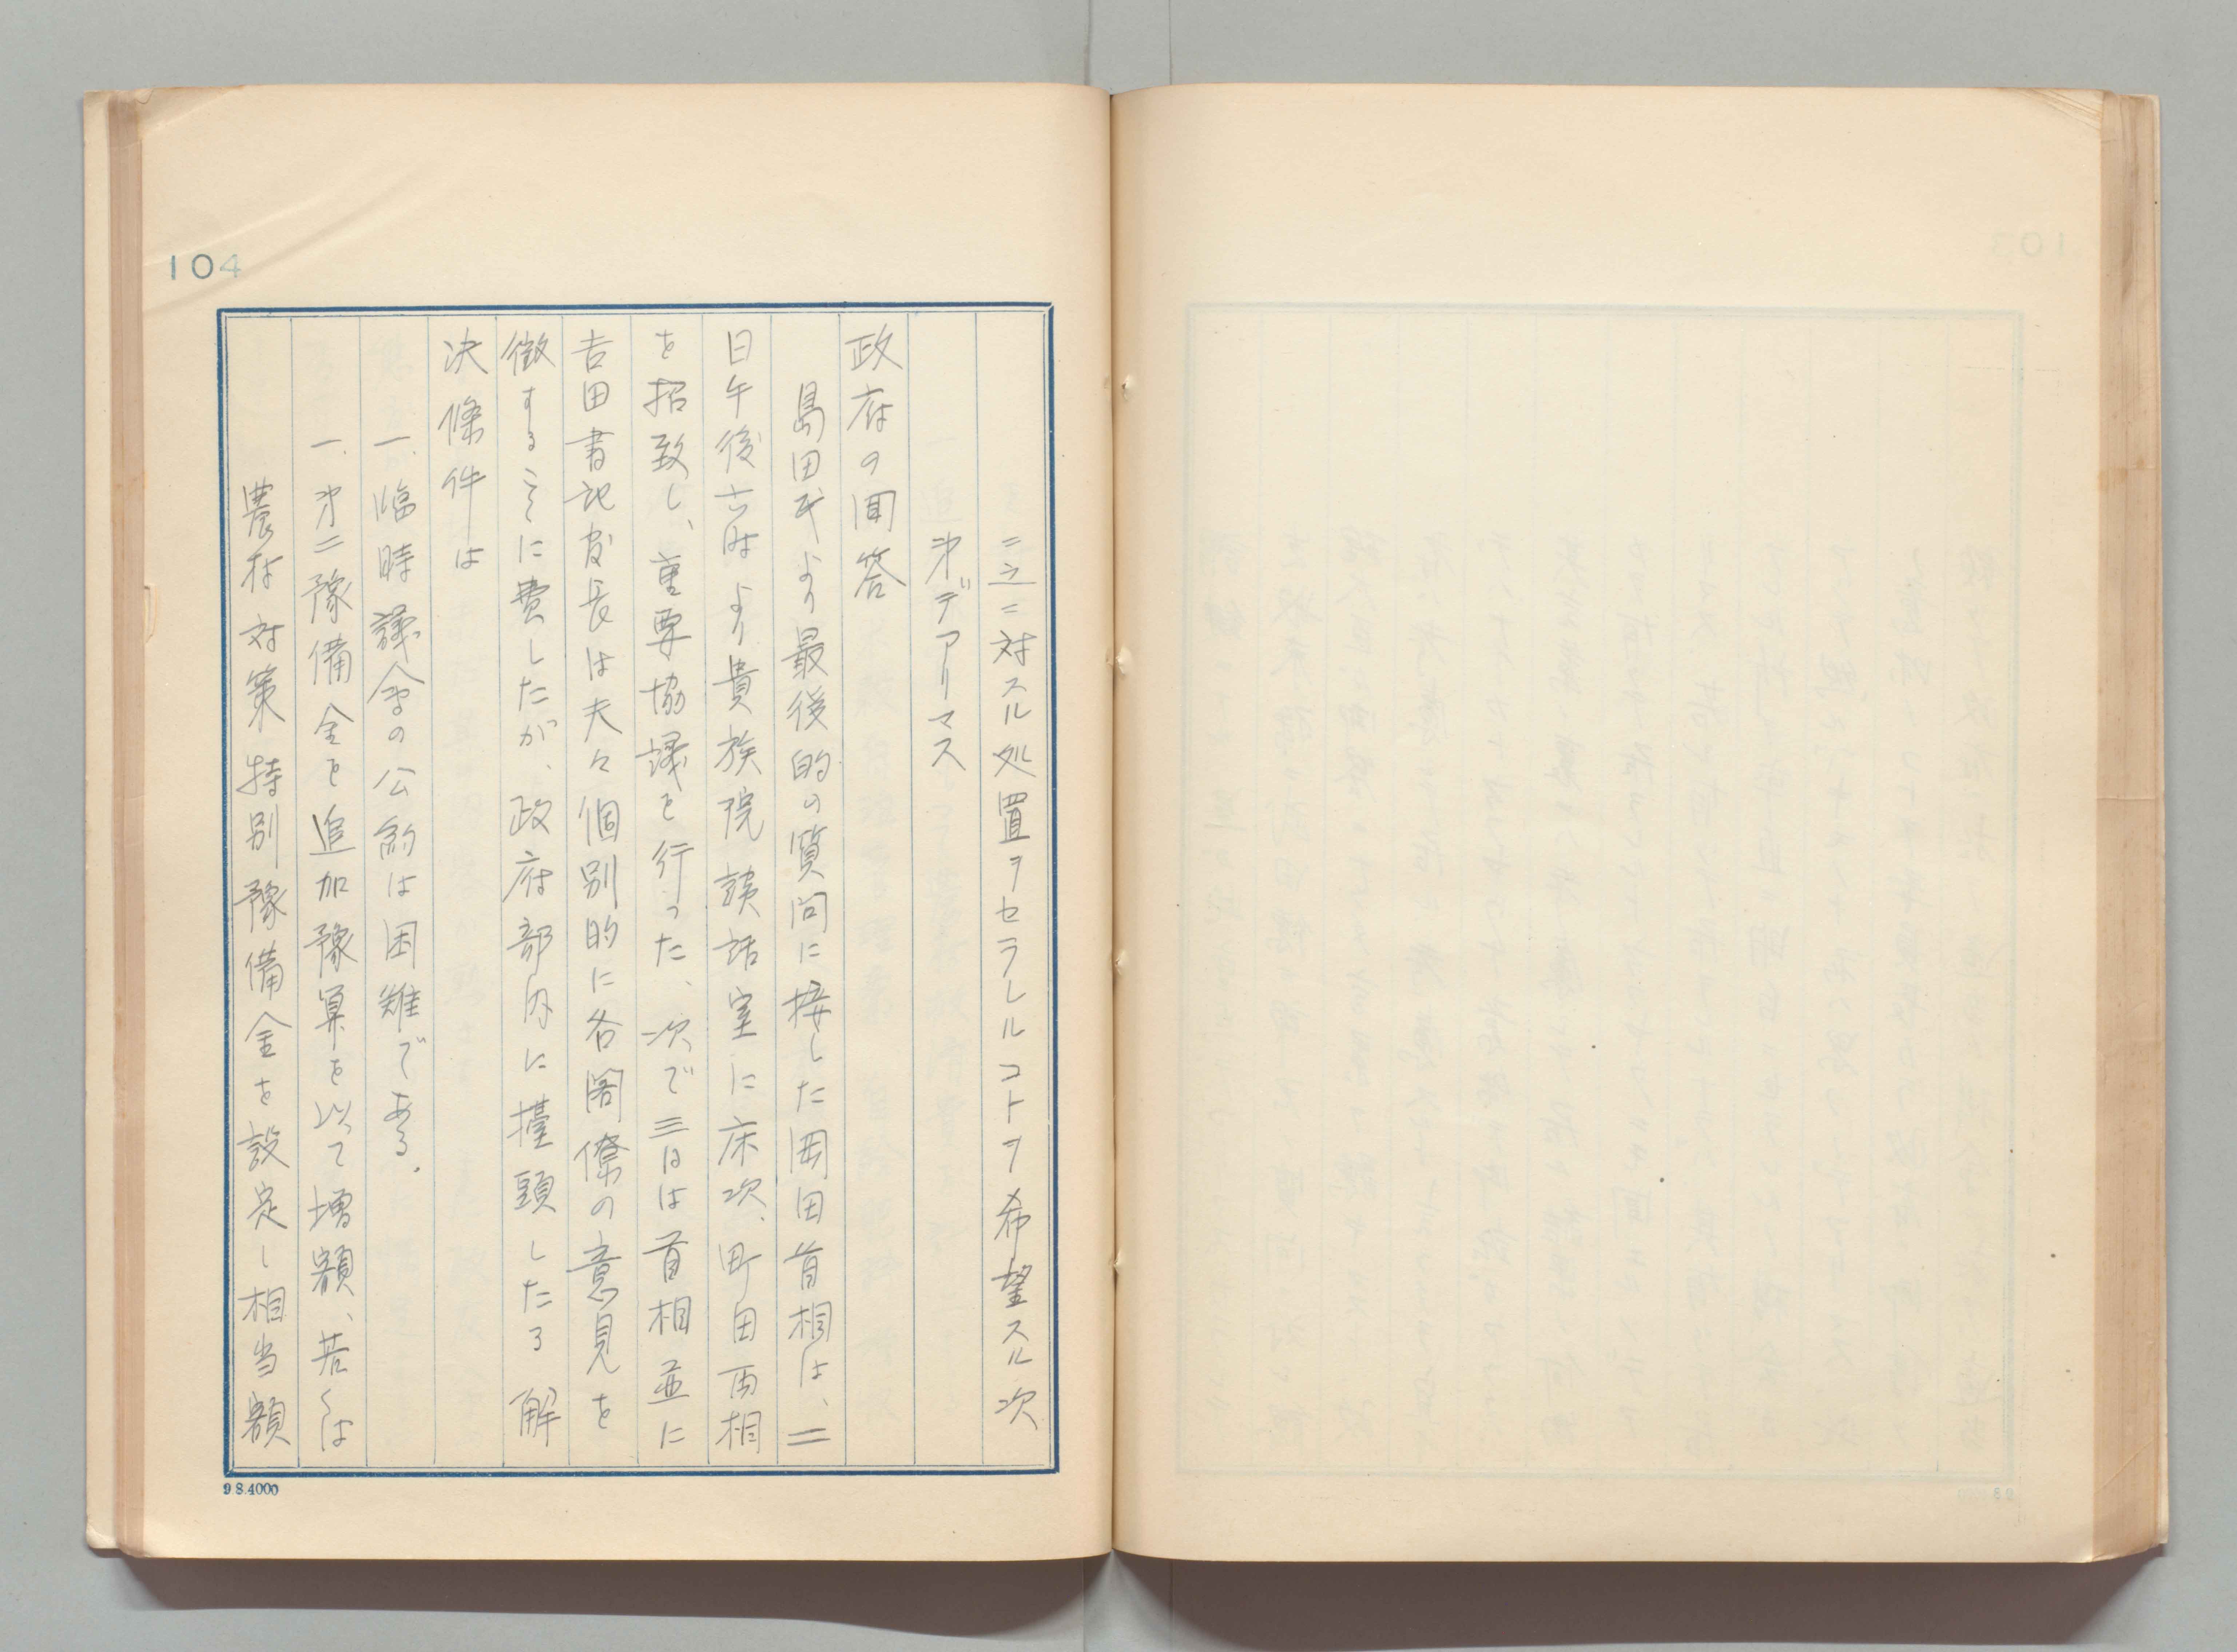 104
ニ之ニ対スル処置ヲセラレルコトヲ希望スル次
第デアリマス
政府の回答
島田氏より最後的の質問に接した岡田首相は、二
日午後六時より貴族院談話室に床次、町田両相
を招致し、重要協議を行った、次で三日は首相並に
吉田書記官長は夫々個別的に各閣僚の意見を
徴することに費したが、政府部内に擡頭したる解
決條件は
一、臨時議会の公約は困難である.
一、第二豫備金を追加豫算を以って増額、若くは
農村対策特別豫備金を設定し相当額
9.8.4000